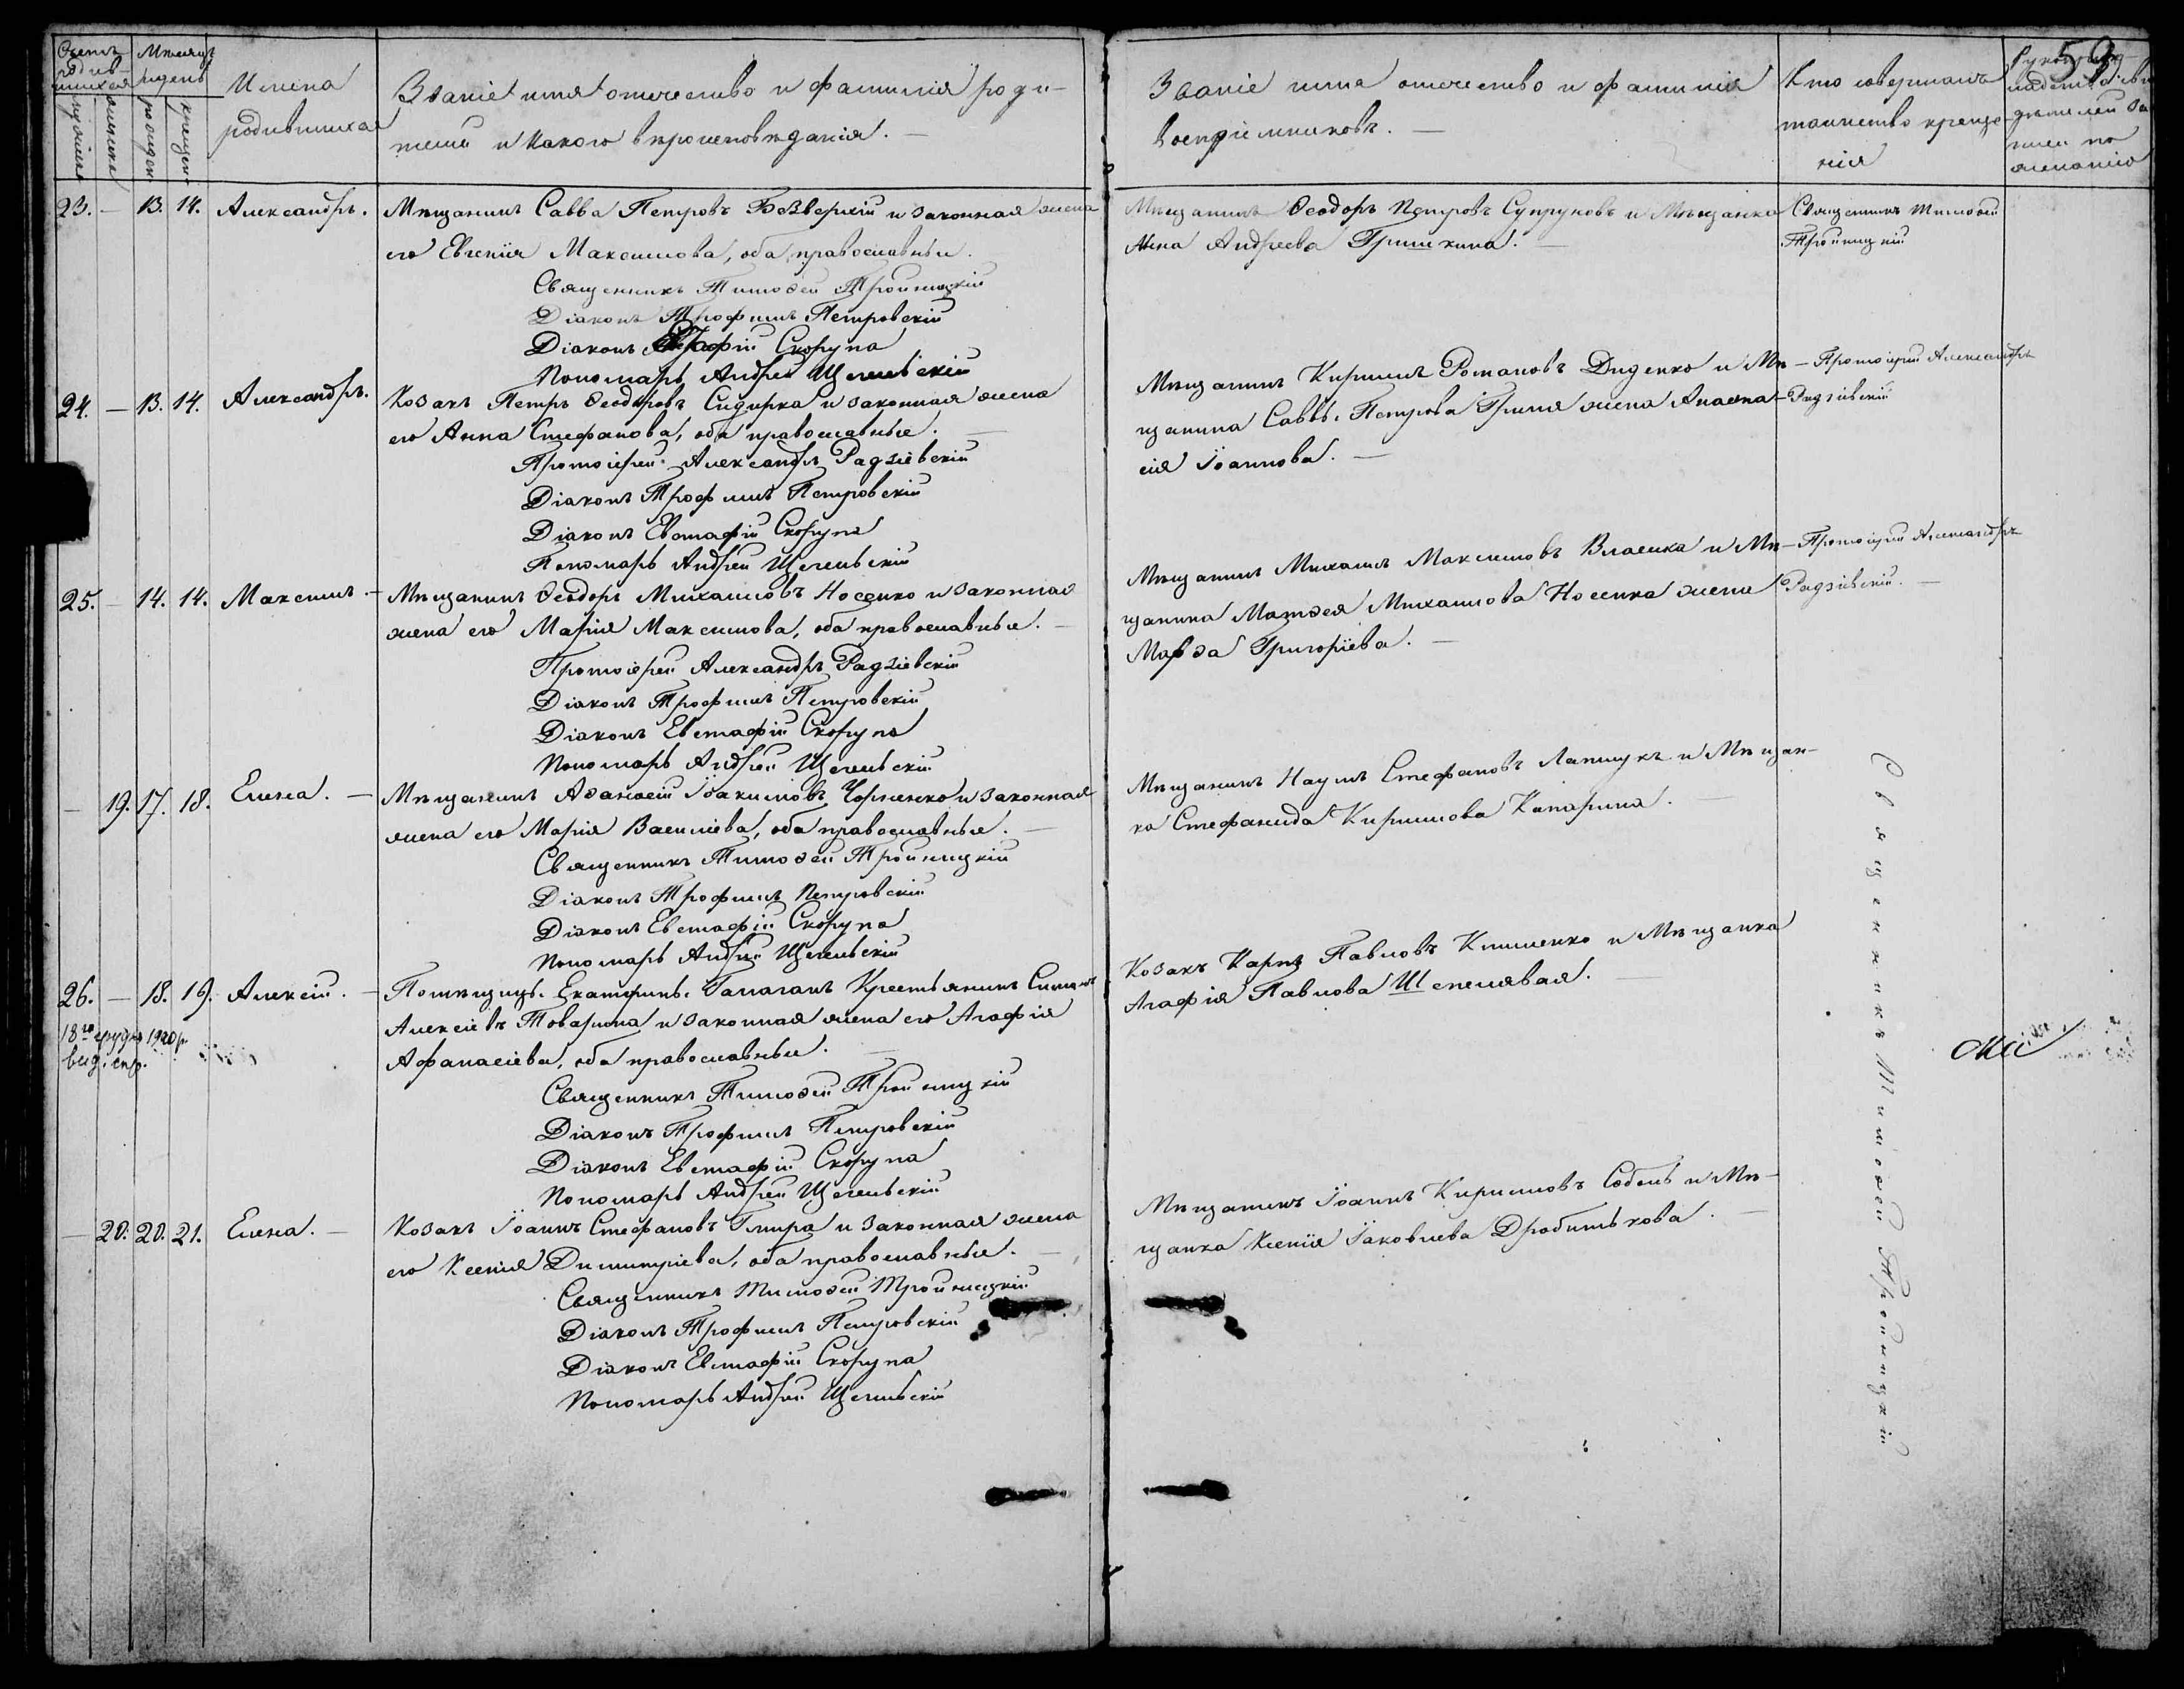 59
Счетъ родив-
шихся
Мѣсяцъ
и день
мужеска
женска
рожден.
крещен.
Имена
родившихся
Званіе имя отечество и фамилія роди-
телей и какого вѣроисповѣданія. —
Званіе имя отечество и фамилія
воспріемниковъ. —
Кто совершалъ
таинство креще-
нія
Рукоприкла-
дство свидѣ-
телей за-
писи по
желанію
23. — 13. 14. Александръ.
Мѣщанинъ Савва Петровъ Безверхій и законная жена
его Евгенія Максимова, оба православные.
Священникъ Тимоѳей Тройницкій
Діаконъ Трофимъ Петровскій
Діаконъ Скорупа
Пономарь Андрей Щегельскій
Мѣщанинъ Ѳеодоръ Петровъ Супруновъ и Мѣщанка
Анна Андреева Гришкина. —
Священникъ Тимоѳей
Тройницкій
24. — 13. 14. Александръ.
Козакъ Петръ Ѳеодоровъ Сидирка и законная жена
его Анна Стефанова, оба православные. —
Протоіерей Александръ Радзіевскій
Діаконъ Трофимъ Петровскій
Діаконъ Евстафій Скорупа
Пономарь Андрей Щегельскій
Мѣщанинъ Кириллъ Романовъ Диденко и Мѣ-
щанина Саввы Петрова Гриня жена Анаста-
сія Іоаннова. —
Протоіерей Александръ
Радзіевскій
25. — 14. 14. Максимъ. —
Мѣщанинъ Ѳеодоръ Михаиловъ Носенко и законная
жена его Марія Максимова, оба православные. —
Протоіерей Александръ Радзіевскій
Діаконъ Трофимъ Петровскій
Діаконъ Евстафій Скорупа
Пономарь Андрей Щегельскій
Мѣщанинъ Михаилъ Максимовъ Власенко и Мѣ-
щанина Матѳея Михаилова Носенка жена
Марѳа Григоріева. —
Протоіерей Александръ
Радзіевскій. —
— 19. 17. 18. Елена. —
Мѣщанинъ Аѳанасій Іоакимовъ Черненко и законная
жена его Марія Василіева, оба православные. —
Священникъ Тимоѳей Тройницкій
Діаконъ Трофимъ Петровскій
Діаконъ Евстафій Скорупа
Пономарь Андрей Щегельскій
Мѣщанинъ Наумъ Стефановъ Лапшукъ и Мѣщан-
ка Стефанида Кириллова Кипарина. —
Священникъ Тимоѳей Тройницкій
26. — 18. 19. Алексій. —
Помѣщицы Екатерины Галаганъ Крестьянинъ Симеонъ
Алексіевъ Товарина и законная жена его Агафія
Афанасіева, оба православные. —
Священникъ Тимоѳей Тройницкій
Діаконъ Трофимъ Петровскій
Діаконъ Евстафій Скорупа
Пономарь Андрей Щегельскій
18го грудня 1920 р.
вид. спр.
Козакъ Карпъ Павловъ Клименко и Мѣщанка
Агафія Павлова Шепелявая. —
— 20. 20. 21. Елена. —
Козакъ Іоаннъ Стефановъ Гмира и законная жена
его Ксенія Димитріева, оба православные. —
Священникъ Тимоѳей Тройницкій
Діаконъ Трофимъ Петровскій
Діаконъ Евстафій Скорупа
Пономарь Андрей Щегельскій
Мѣщанинъ Іоаннъ Кирилловъ Соболь и Мѣ-
щанка Ксенія Іаковлева Дробитькова. —